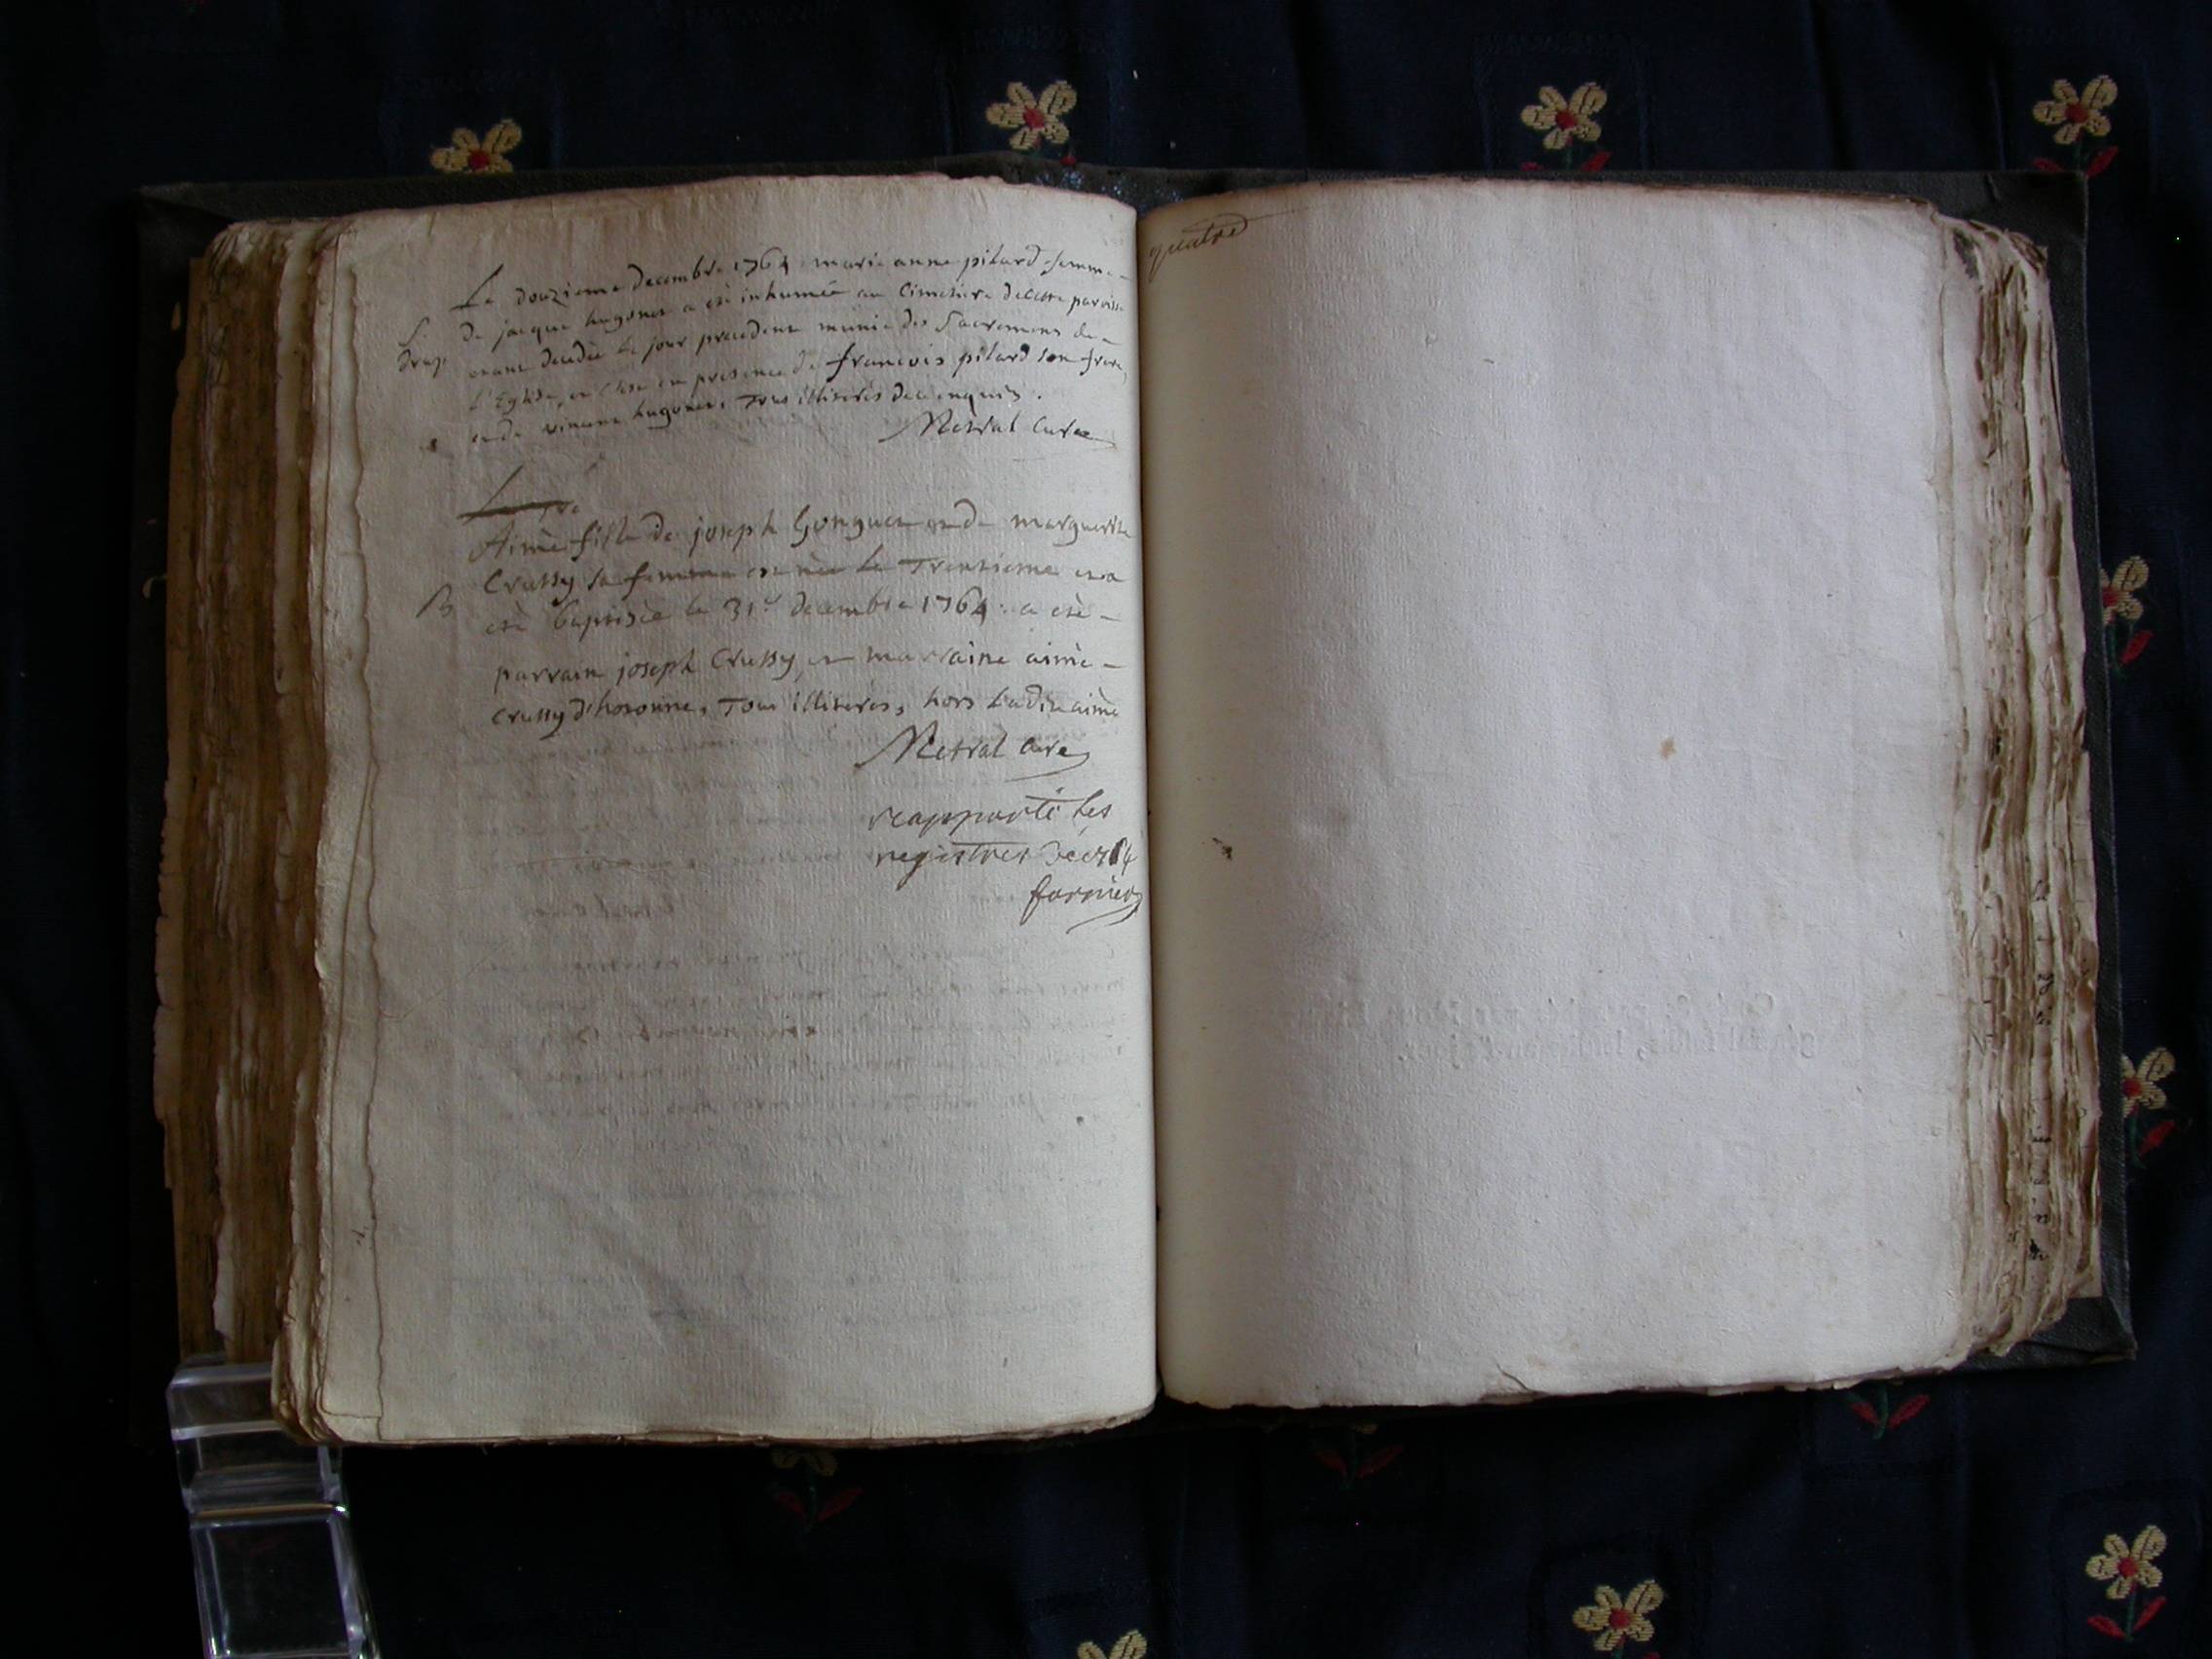 Le douzieme decembre 1764 marie anne pilard femme
S. de jacque hugonet a eté inhumée au Cimetiere de cette paroisse
etant decedée le jour precedent munie des Sacremens de
l'Eglise, et c'est en presence de francois pilard son frere,
et de vincent hugonet, Tous illiterés de ce enquis.
Metral Curé
Le
Aimée fille de joseph Gonguet et de marguerite
Crussy sa femme est née le Trentieme et a
B
eté baptisée le 31.e decembre 1764 a eté
parrain joseph Crussy, et marraine aimée
Crussy d'hotonne, Tous illiterés, hors ladite aimée
Metral Curé
reapporté les
registres
quatre